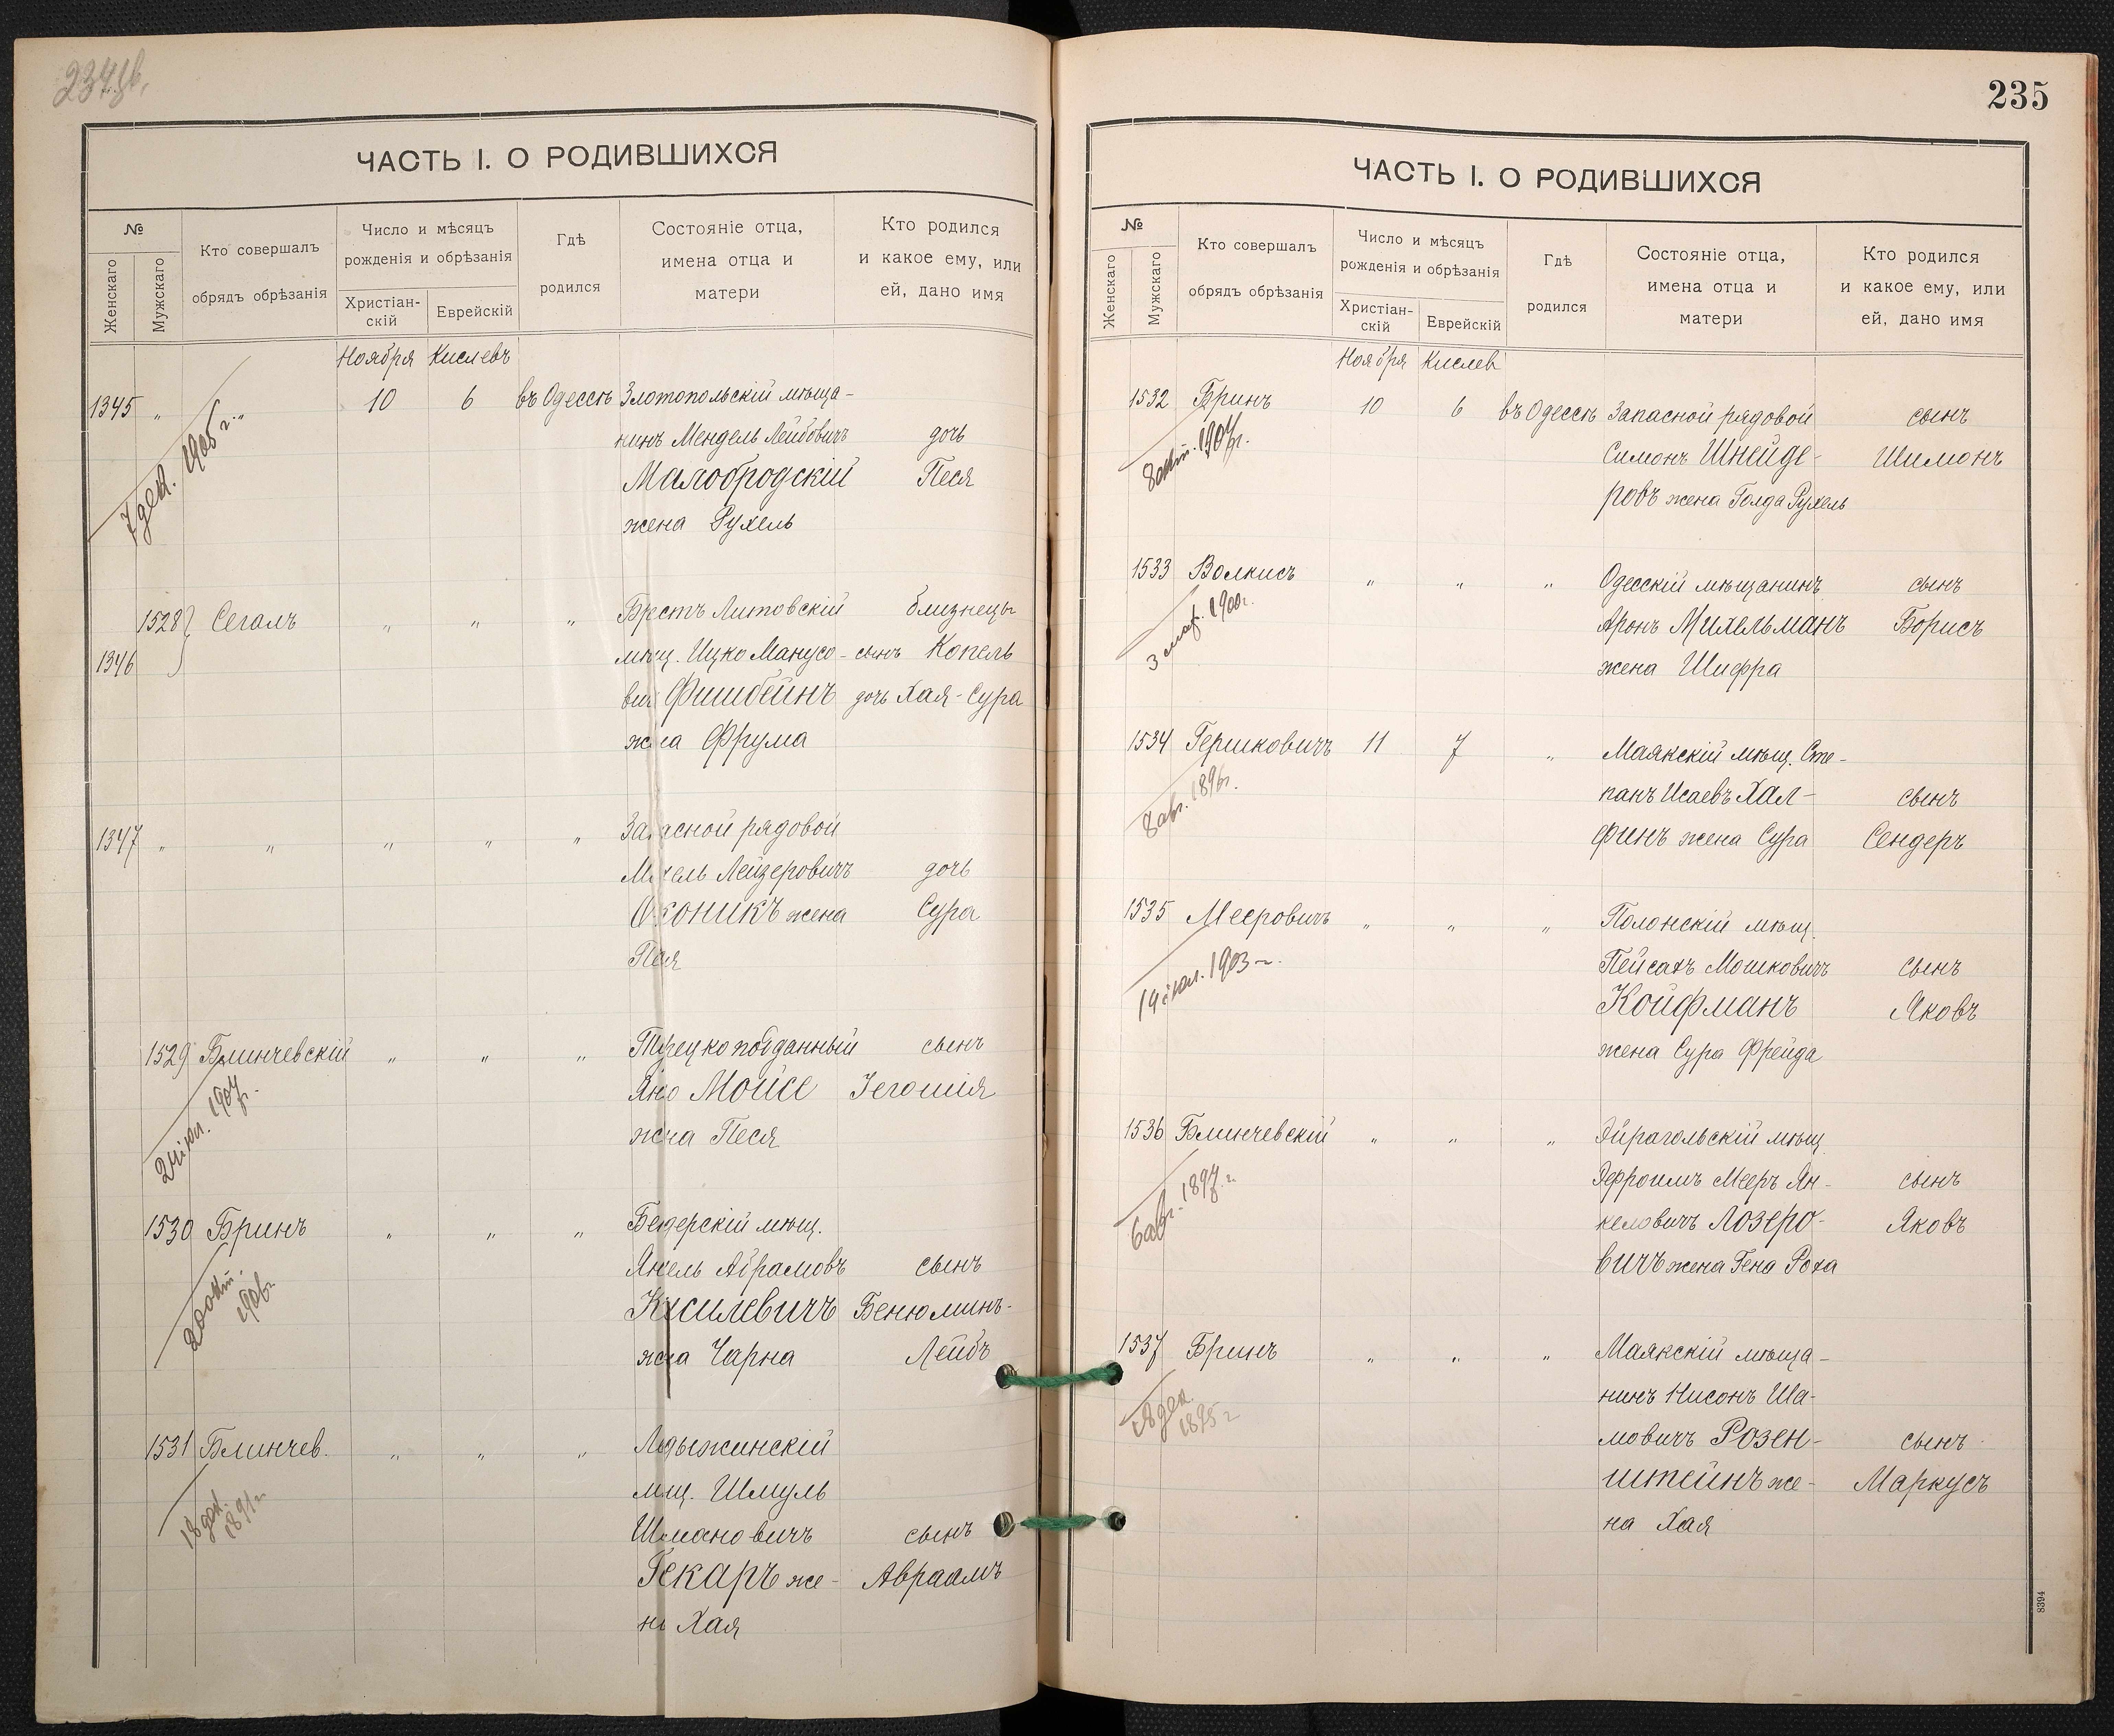 234 об.
ЧАСТЬ I. О РОДИВШИХСЯ
№
Женскаго
Мужскаго
Кто совершалъ
обрядъ обрѣзанія
Число и мѣсяцъ
рожденія и обрѣзанія
Христіан-
скій
Еврейскій
Гдѣ
родился
Состояніе отца,
имена отца и
матери
Кто родился
и какое ему, или
ей, дано имя
Ноября Кислевъ
1345 „ „ 10 6 въ Одессѣ Злотопольскій мѣща-
нинъ Мендель Лейбовичъ дочь
Малобродскій Песя
жена Рухель
7 дек. 1905 г.
1528 Сегалъ „ „ „ Брестъ Литовскій близнецы
1346 мѣщ. Ицко Манусо- сынъ Копель
вич Фишбейнъ дочь Хая-Сура
жена Фрума
1347 „ „ „ „ „ Запасной рядовой
Михель Лейзеровичъ дочь
коникъ жена Сура
Песя
1529 Блинчевскій „ „ „ Турецко подданный сынъ
Янко Мойсе Іегошія
жена Песя
24 іюл. 1907 г.
1530 Бринъ „ „ „ Бендерскій мѣщ.
Янкель Абрамовъ сынъ
Кисилевичъ Бенюминъ-
жена Чарна Лейбъ
20 окт. 1906 г.
1531 Блинчев. „ „ „ Ладыжинскій
мѣщ. Шмуль
Шимановичъ сынъ
Гекаръ же- Авраамъ
на Хая
18 дек. 1891 г.
235
ЧАСТЬ I. О РОДИВШИХСЯ
№
Женскаго
Мужскаго
Кто совершалъ
обрядъ обрѣзанія
Число и мѣсяцъ
рожденія и обрѣзанія
Христіан-
скій
Еврейскій
Гдѣ
родился
Состояніе отца,
имена отца и
матери
Кто родился
и какое ему, или
ей, дано имя
Ноября Кислев
1532 Бринъ 10 6 въ Одессѣ Запасной рядовой сынъ
Симонъ Шнейде- Шимонъ
ровъ жена Голда Рухель
8 окт. 1907 г.
1533 Волкисъ „ „ „ Одесскій мѣщанинъ сынъ
Аронъ Михельманъ Борисъ
жена Шифра
3 1900 г.
1534 Гершковичъ 11 7 „ Маякскій мѣщ. Сте-
панъ Исаевъ Хал- сынъ
финъ жена Сура Сендеръ
8 авг. 1896 г.
1535 Мееровичъ „ „ „ Полонскій мѣщ.
Пейсахъ Мошковичъ сынъ
Койфманъ Яковъ
жена Сура Фрейда
14 іюл. 1903 г.
1536 Блинчевскій „ „ „ Эйрагольскій мѣщ.
Эфроимъ Мееръ Ян- сынъ
келовичъ Лозеро- Яковъ
вичъ жена Гена Роха
6 авг. 1897 г.
1537 Бринъ „ „ „ Маякскій мѣща-
нинъ Нисонъ Ша-
мовичъ Розен- сынъ
штейнъ же- Маркусъ
на Хая
18 дек. 1895 г.
8394